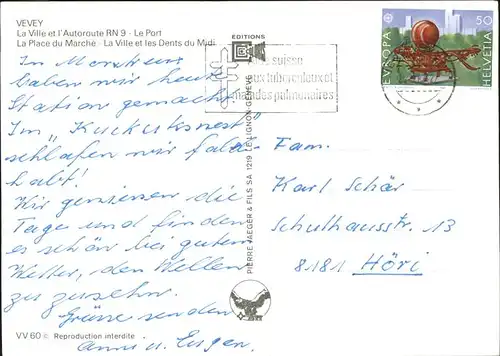 VEVEY
La Ville et l'Autoroute RN 9 - Le Port
La Place du Marché - La Ville et les Dents du Midi
EDITIONS
suisse
aux tuberculeux et
malades pulmonaires
EUROPA
HELVETIA
50
In
haben wir heute
Station gemacht.
Im "Kuckucksnest"
schlafen wir
Wir geniessen die
Tage und finden
es schön bei gutem
Wetter, den Wellen
zu zusehen.
Grüsse senden
Anni u. Eugen.
PIERRE JAEGER & FILS SA 1219 LE LIGNON-GENÈVE
Fam.
Karl Schär
Schulhausstr. 13
8181 Höri
VV 60 © Reproduction interdite